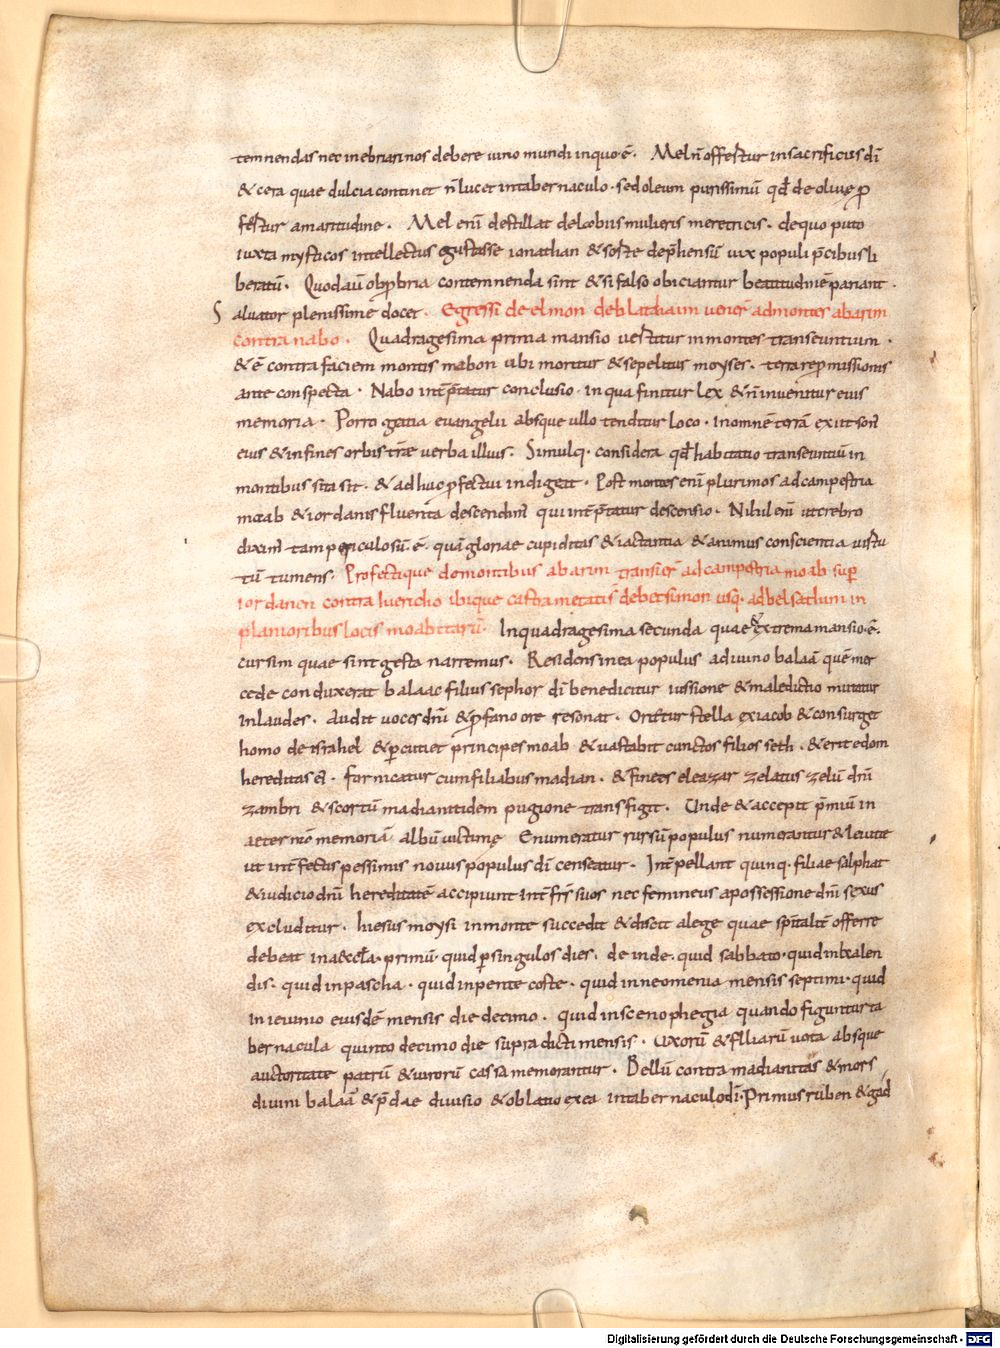 temnendas nec inebriari nos debere uino mundi in quo ē. Mel n̄ offertur in sacrificiis dī
& cera quae dulcia continet n̄ lucet in tabernaculo. sed oleum purissimū qd̄ de oliuę ꝑ
fertur amaritudine. Mel enī destillat de labiis mulieris meretricis. de quo puto
iuxta mysticos intellectus gustasse ionathan & sorte dep̄hensū uix populi p̄cibus li
beratū. Quod aū obprobria contemnenda sint & si falso obiciantur beatitudinē pariant.
Saluator plenissime docet. Egressi de elmon deblathaim uener̄ ad montes abarim
contra nabo. Quadragesima prima mansio uertitur in montes transeuntium.
& ē contra faciem montis nabon ubi moritur & sepelitur moyses. terra repromissionis
ante conspecta. Nabo int̄p̄tatur conclusio. in qua finitur lex & n̄ inuenitur eius
memoria. Porro gratia euangelii absque ullo tenditur loco. In omnē terrā exiit son̄
eius & in fines orbis trae uerba illius. Simulq. considera qd̄ habitatio transeuntiū in
montibus sita sit. & adhuc ꝓfectui indigeat. Post montes enī plurimos ad campestria
moab & iordanis fluenta descendim̄ qui int̄p̄tatur descensio. Nihil enī ut crebro
dixim̄ tam periculosū ē. quā gloriae cupiditas & iactantia & animus conscientia uirtu
tū tumens. Profectique de montibus abarim transier̄ ad campestria moab sup̄
iordanen contra hiericho ibique castra metati s̄ de betsimon usq. ad belsathim in
planioribus locis moabitarū. In quadragesima secunda quae & extrema mansio ē.
cursim quae sint gesta narremus. Residens in ea populus a diuino balaā quē mer
cede conduxerat balaac filius sephor dī benedicitur iussione & maledictio mutatur
in laudes. Audit uoces dn̄i & ꝓfano ore resonat. Orietur stella ex iacob & consurget
homo de israhel & ꝑcutiet principes moab & uastabit cunctos filios seth. & erit edom
hereditas ei. fornicatur cum filiabus madian. & finees eleazar zelatus zelū dn̄i
zambri & scortū madianitidem pugione transfigit. Unde & accepit p̄miū in
aeternā memoriā albū uictimę Enumeratur rursū populus numerantur & leuitae
ut int̄fectis pessimis nouus populus dī censeatur. Int̄pellant quinq. filiae salphat
& iudicio dn̄i hereditatē accipiunt int̄ frs̄ suos nec femineus a possessione dn̄i sexus
excluditur. hiesus moysi in monte succedit & discit a lege quae spītalit̄ offerre
debeat in aeccła. primū. quid ꝑ singulos dies. deinde. quid sabbato. quid in kalen
dis. quid in pascha. quid in pentecoste. quid in neomenia mensis septimi. quid
in ieiunio eiusdē mensis die decimo. quid in scenophegia quando figuntur ta
bernacula quinto decimo die supradicti mensis. Uxorū & filiarū uota absque
auctoritate patrū & uirorū cassa memorantur. Bellū contra madianitas & mors
diuini balaā & p̄dae diuisio & oblatio ex ea in tabernaculo dī. Primus ruben & gad
Digitalisierung gefördert durch die Deutsche Forschungsgemeinschaft - DFG